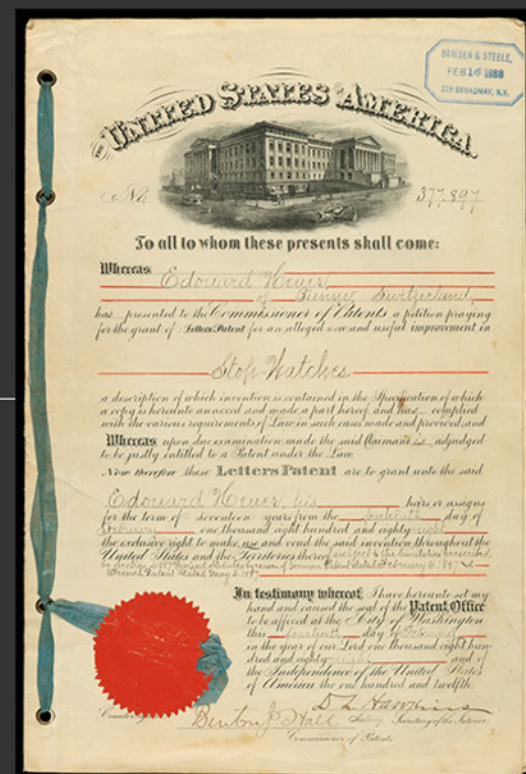 BRIESEN & STEELE,
FEB 16 1888
229 BROADWAY, N.Y.
THE UNITED STATES OF AMERICA.
No. 377.897
To all to whom these presents shall come:
Whereas Edouard Heuer,
of Bienne, Switzerland,
has presented to the Commissioner of Patents a petition praying
for the grant of Letters Patent for an alleged new and useful improvement in
Stop-Watches
a description of which invention is contained in the Specification of which
a copy is hereunto annexed and made a part hereof, and has complied
with the various requirements of Law in such cases made and provided, and
Whereas upon due examination made the said Claimant is adjudged
to be justly entitled to a Patent under the Law.
Now therefore these Letters Patent are to grant unto the said
Edouard Heuer, his heirs or assigns
for the term of seventeen years from the fourteenth day of
February one thousand eight hundred and eighty-eight
the exclusive right to make use and vend the said invention throughout the
United States and the Territories thereof subject to the limitation prescribed
by section 4887 Revised Statutes by reason of German Patent dated February 6, 1887 &
French Patent dated May 3, 1887
In testimony whereof I have hereunto set my
hand and caused the seal of the Patent Office
to be affixed at the City of Washington
this fourteenth day of February
in the year of our Lord one thousand eight hun-
dred and eighty-eight and of
the Independence of the United States
of America the one hundred and twelfth.
D. L. Hawkins
Secretary of the Interior.
Benton J. Hall
Commissioner of Patents.